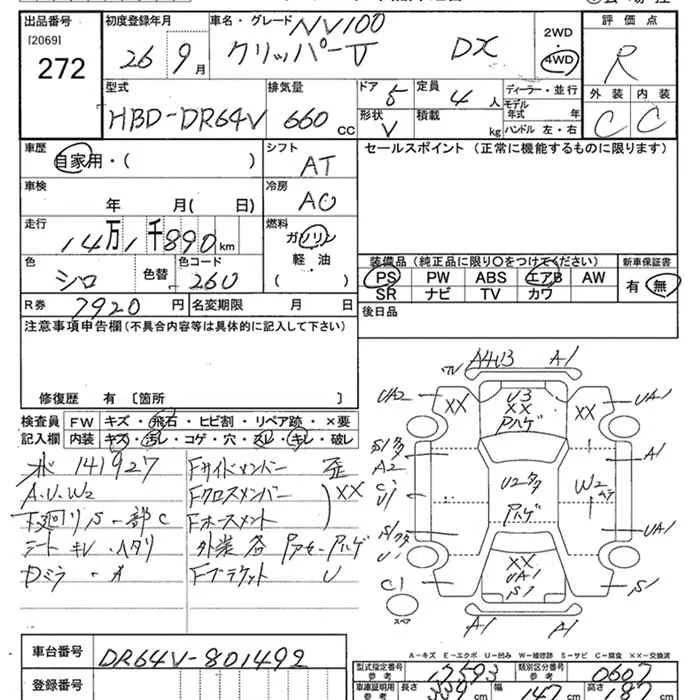 出品番号
[2069]
272
初度登録年月
26年 9月
車名・グレード
NV100
クリッパーV DX
2WD
4WD
評価点
R
外装 内装
C C
型式
HBD-DR64V
排気量
660 cc
ドア
5
定員
4人
形状
V
積載
kg
ディーラー・並行
モデル年式 年
ハンドル 左・右
車歴
自家用・( )
シフト
AT
車検
年 月( 日)
冷房
AC
走行
14万1千890km
燃料
ガソリン
軽油
( )
色
シロ
色替
色コード
260
R券 7920円
名変期限 月 日
セールスポイント (正常に機能するものに限ります)
装備品 (純正品に限り○をつけてください)
PS PW ABS エアB AW
SR ナビ TV カワ
新車保証書
有 無
後日品
注意事項申告欄 (不具合内容等は具体的に記入して下さい)
修復歴 有 〔箇所 〕
検査員記入欄
FW キズ・飛石・ヒビ割・リペア跡・×要
内装 キズ・汚レ・コゲ・穴・スレ・キレ・破レ
141927
A.U.W2
下廻りS 一部C
シート キレ・ヘタリ
Fサイドメンバー 歪
Fクロスメンバー
XX
Fホースメント
Fブラケット U
A4U3 A1
UA2 XX U3 XX Pハゲ XX UA1
A2 A1
U1 U2 Pハゲ W2
UA1
C1 XX UA1 S1 S1
スペア
A1 A1
A-キズ E-エクボ U-凹み W-補修跡 S-サビ C-腐食 XX-交換済
車台番号 DR64V-801492
登録番号
型式指定番号 参考 17593
類別区分番号 参考 0607
車庫証明用 参考 長さ 339cm 幅 147cm 高さ 187cm